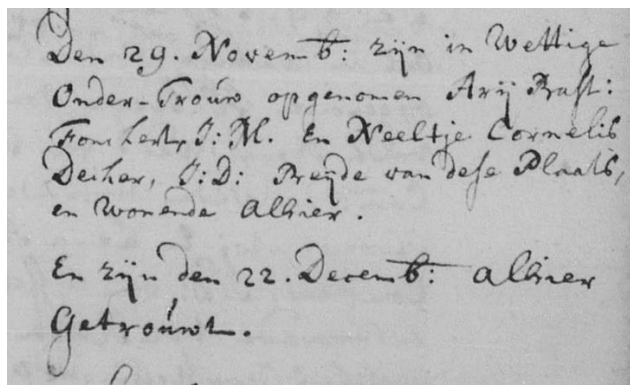 Den 29. Novemb: zijn in Wettige
Onder-Trouw opgenomen Arij Bast:
J: M. En Neeltje Cornelis
Decker, J: D: Beijde van dese Plaats,
en wonende alhier.
En zijn den 22. Decemb: alhier
Getrouwt.